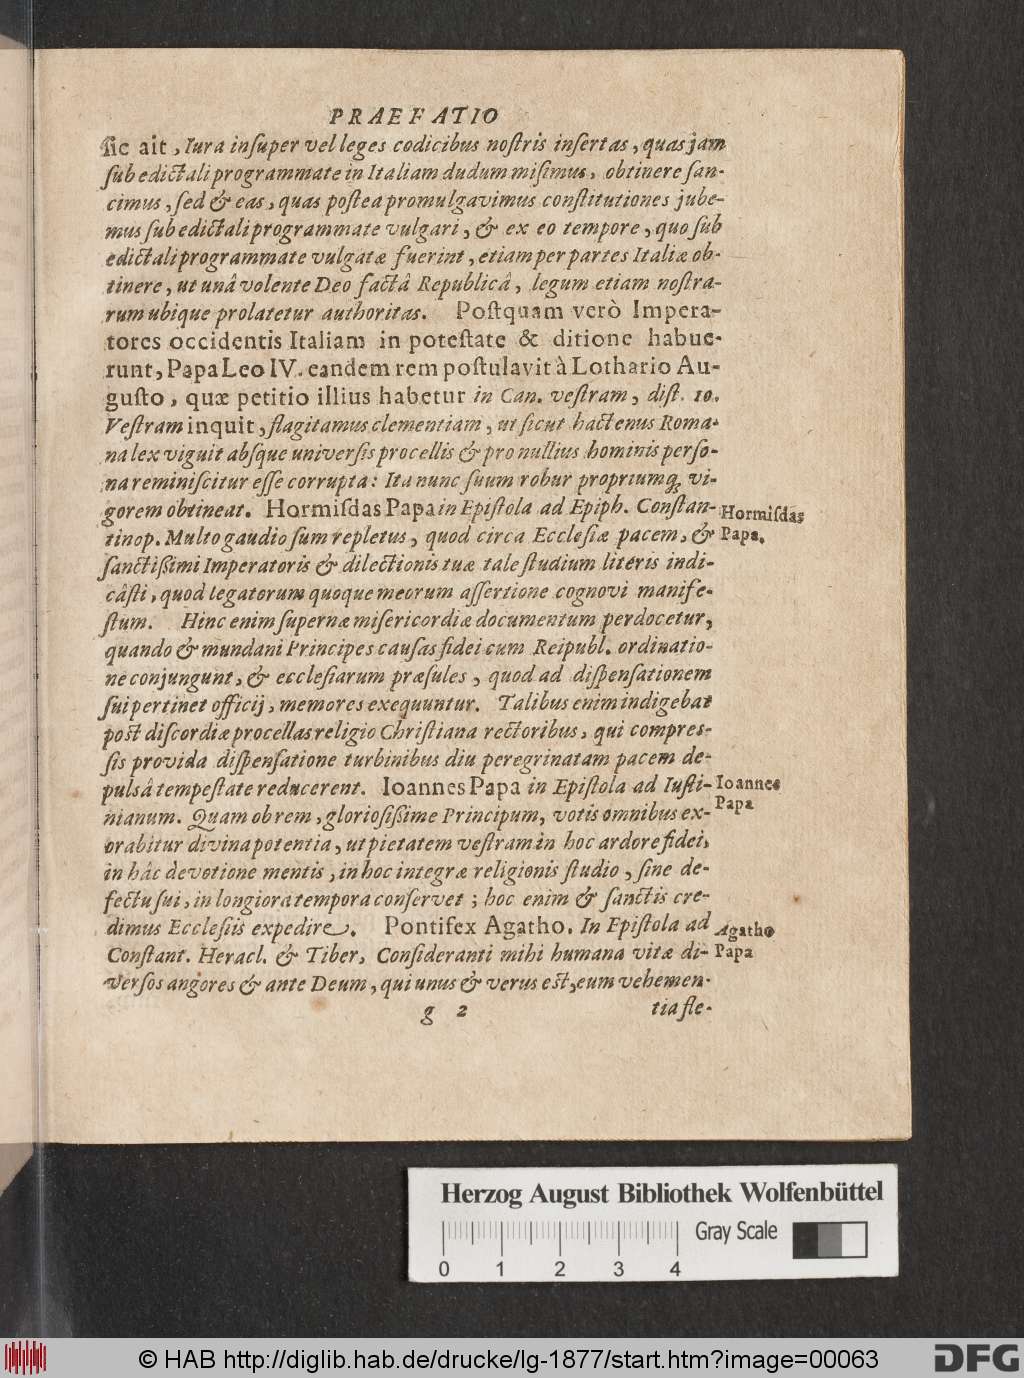 PRAEFATIO
sic ait, Iura inſuper vel leges codicibus noſtris inſertas, quas jam
ſub edictali programmate in Italiam dudum miſimus, obtinere ſan-
cimus, ſed & eas, quas poſtea promulgavimus conſtitutiones jube-
mus ſub edictali programmate vulgari, & ex eo tempore, quo ſub
edictali programmate vulgatæ fuerint, etiam per partes Italiæ ob-
tinere, ut unâ volente Deo factâ Republicâ, legum etiam noſtra-
rum ubique prolatetur authoritas. Poſtquam verò Impera-
tores occidentis Italiam in poteſtate & ditione habue-
runt, Papa Leo IV. eandem rem poſtulavit à Lothario Au-
guſto, quæ petitio illius habetur in Can. veſtram, diſt. 10.
Veſtram inquit, flagitamus clementiam, ut ſicut hactenus Roma-
na lex viguit abſque univerſis procellis & pro nullius hominis perſo-
na reminiſcitur eſſe corrupta: Ita nunc ſuum robur propriumq; vi-
gorem obtineat. Hormiſdas Papa in Epiſtola ad Epiph. Conſtan-
tinop. Multo gaudio ſum repletus, quod circa Eccleſiæ pacem, &
ſanctißimi Imperatoris & dilectionis tuæ tale ſtudium literis indi-
câſti, quod legatorum quoque meorum aſſertione cognovi manife-
ſtum. Hinc enim ſupernæ miſericordiæ documentum perdocetur,
quando & mundani Principes cauſas fidei cum Reipubl. ordinatio-
ne conjungunt, & eccleſiarum præſules, quod ad diſpenſationem
ſui pertinet officij, memores exequuntur. Talibus enim indigebat
poſt diſcordiæ procellas religio Chriſtiana rectoribus, qui compreſ-
ſis provida diſpenſatione turbinibus diu peregrinatam pacem de-
pulsâ tempeſtate reducerent. Ioannes Papa in Epiſtola ad Iuſti-
nianum. Quam ob rem, glorioſißime Principum, votis omnibus ex-
orabitur divina potentia, ut pietatem veſtram in hoc ardore fidei,
in hâc devotione mentis, in hoc integræ religionis ſtudio, ſine de-
fectu ſui, in longiora tempora conſervet; hoc enim & ſanctis cre-
dimus Eccleſiis expedire. Pontifex Agatho. In Epiſtola ad
Conſtant. Heracl. & Tiber, Conſideranti mihi humana vitæ di-
verſos angores & ante Deum, qui unus & verus eſt, eum vehemen-
g 2 tia fle-
Hormiſdas
Papa.
Ioannes
Papa
Agatho
Papa
Herzog August Bibliothek Wolfenbüttel
Gray Scale
0 1 2 3 4
© HAB http://diglib.hab.de/drucke/lg-1877/start.htm?image=00063
DFG